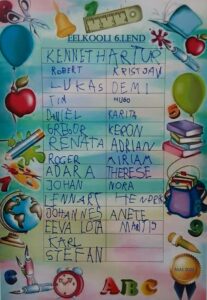 EELKOOLI 6.LEND
KENNETH ARTUR
ROBERT KRISTJAN
LUKAS DEMI
TIM HUGO
DANIEL KARITA
GREGOR KERON
RENATA ADRIAN
ROGER MIRIAM
ADARA THERESE
JOHAN NORA
LENNART HENDER
JOHANNES ANETE
EEVA LOTA MANTIS
KARL
STEFAN
ABC